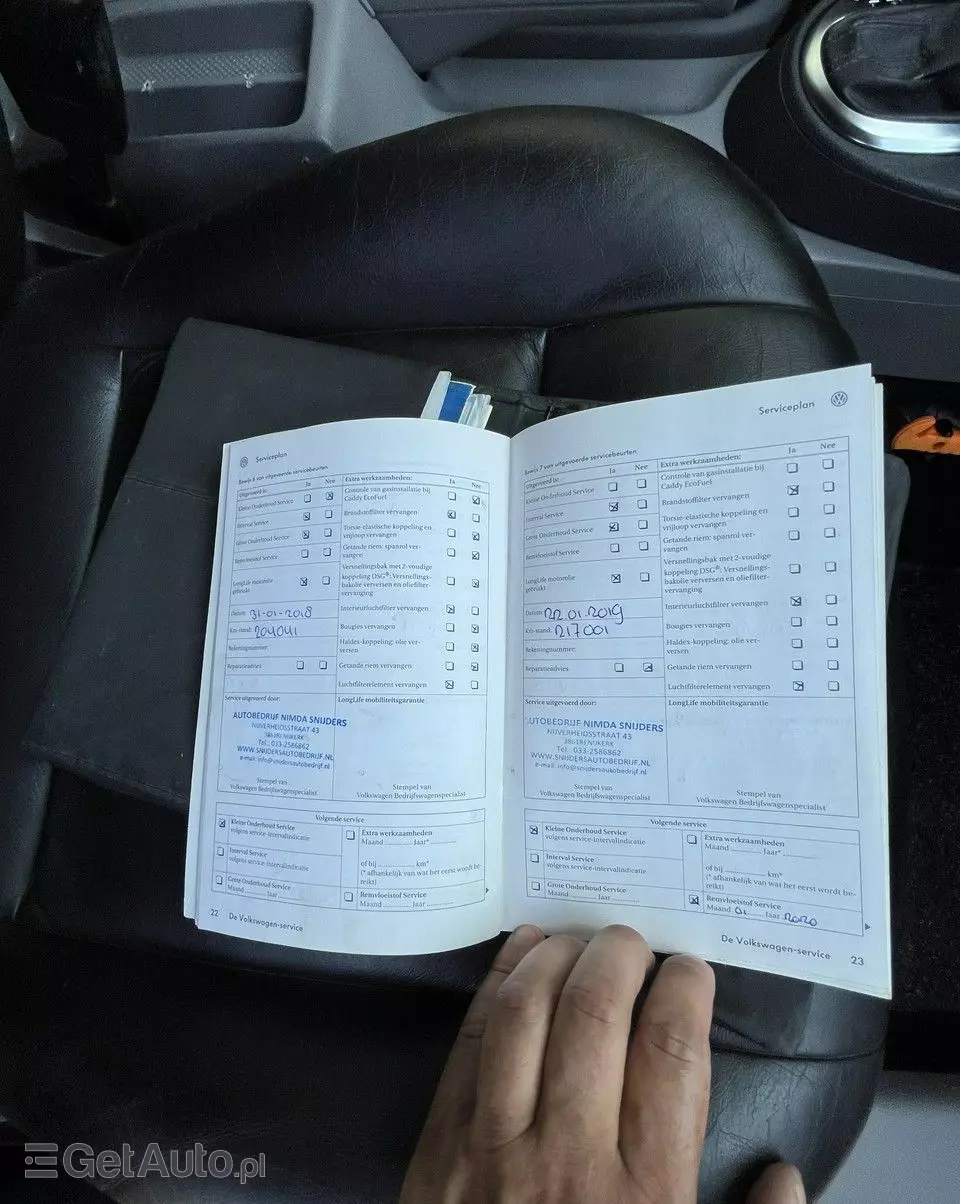 Serviceplan
Bewijs 6 van uitgevoerde servicebeurten
Uitgevoerd is: Ja Nee
Kleine Onderhoud Service
Interval Service
Grote Onderhoud Service
Remvloeistof Service
LongLife motorolie
gebruikt
Datum: 31-01-2018
Km-stand: 204041
Rekeningnummer:
Reparatieadvies
Extra werkzaamheden: Ja Nee
Controle van gasinstallatie bij
Caddy EcoFuel
Brandstoffilter vervangen
Torsie-elastische koppeling en
vrijloop vervangen
Getande riem: spanrol ver-
vangen
Versnellingsbak met 2-voudige
koppeling DSG®: Versnellings-
bakolie verversen en oliefilter-
vervanging
Interieurluchtfilter vervangen
Bougies vervangen
Haldex-koppeling: olie ver-
versen
Getande riem vervangen
Luchtfilterelement vervangen
Service uitgevoerd door:
AUTOBEDRIJF NIMDA SNIJDERS
NIJVERHEIDSSTRAAT 43
3861RJ NIJKERK
Tel.: 033-2586862
WWW.SNIJDERSAUTOBEDRIJF.NL
e-mail: info@snijdersautobedrijf.nl
Stempel van
Volkswagen Bedrijfswagenspecialist
LongLife mobiliteitsgarantie
Stempel van
Volkswagen Bedrijfswagenspecialist
Volgende service
Kleine Onderhoud Service
volgens service-intervalindicatie
Interval Service
volgens service-intervalindicatie
Grote Onderhoud Service
Maand ............ Jaar ............
Extra werkzaamheden
Maand ............ Jaar* ............
of bij ............ km*
(* afhankelijk van wat het eerst wordt be-
reikt)
Remvloeistof Service
Maand ............ Jaar ............
22 De Volkswagen-service
Serviceplan
Bewijs 7 van uitgevoerde servicebeurten
Uitgevoerd is: Ja Nee
Kleine Onderhoud Service
Interval Service
Grote Onderhoud Service
Remvloeistof Service
LongLife motorolie
gebruikt
Datum: 22.01.2019
Km-stand: 217001
Rekeningnummer:
Reparatieadvies
Extra werkzaamheden: Ja Nee
Controle van gasinstallatie bij
Caddy EcoFuel
Brandstoffilter vervangen
Torsie-elastische koppeling en
vrijloop vervangen
Getande riem: spanrol ver-
vangen
Versnellingsbak met 2-voudige
koppeling DSG®: Versnellings-
bakolie verversen en oliefilter-
vervanging
Interieurluchtfilter vervangen
Bougies vervangen
Haldex-koppeling: olie ver-
versen
Getande riem vervangen
Luchtfilterelement vervangen
Service uitgevoerd door:
UTOBEDRIJF NIMDA SNIJDERS
NIJVERHEIDSSTRAAT 43
3861RJ NIJKERK
Tel.: 033-2586862
WWW.SNIJDERSAUTOBEDRIJF.NL
e-mail: info@snijdersautobedrijf.nl
Stempel van
Volkswagen Bedrijfswagenspecialist
LongLife mobiliteitsgarantie
Stempel van
Volkswagen Bedrijfswagenspecialist
Volgende service
Kleine Onderhoud Service
volgens service-intervalindicatie
Interval Service
volgens service-intervalindicatie
Grote Onderhoud Service
Maand ............ Jaar ............
Extra werkzaamheden
Maand ............ Jaar* ............
of bij ............ km*
(* afhankelijk van wat het eerst wordt be-
reikt)
Remvloeistof Service
Maand 01 Jaar 2020
De Volkswagen-service 23
GetAuto.pl